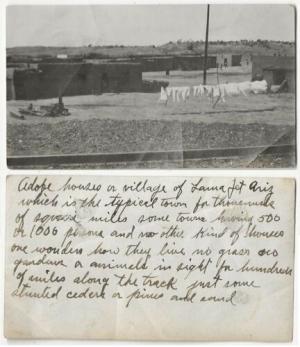 Adobe houses or village of
which is the typical town for thousands
of square miles some towns having 500
or 1000 persons and no other kind of houses
one wonders how they live no grass no
gardens or animals in sight for hundreds
of miles along the track just some
stunted ceders or pines and sand